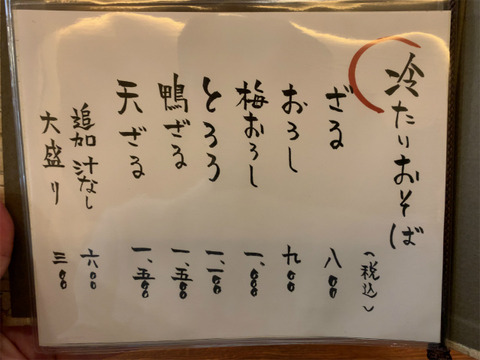 冷たいおそば
(税込)
ざる 八〇〇
おろし 九〇〇
梅おろし 一、〇〇〇
とろろ 一、一〇〇
鴨ざる 一、五〇〇
天ざる 一、五〇〇
追加 汁なし 六〇〇
大盛り 三〇〇